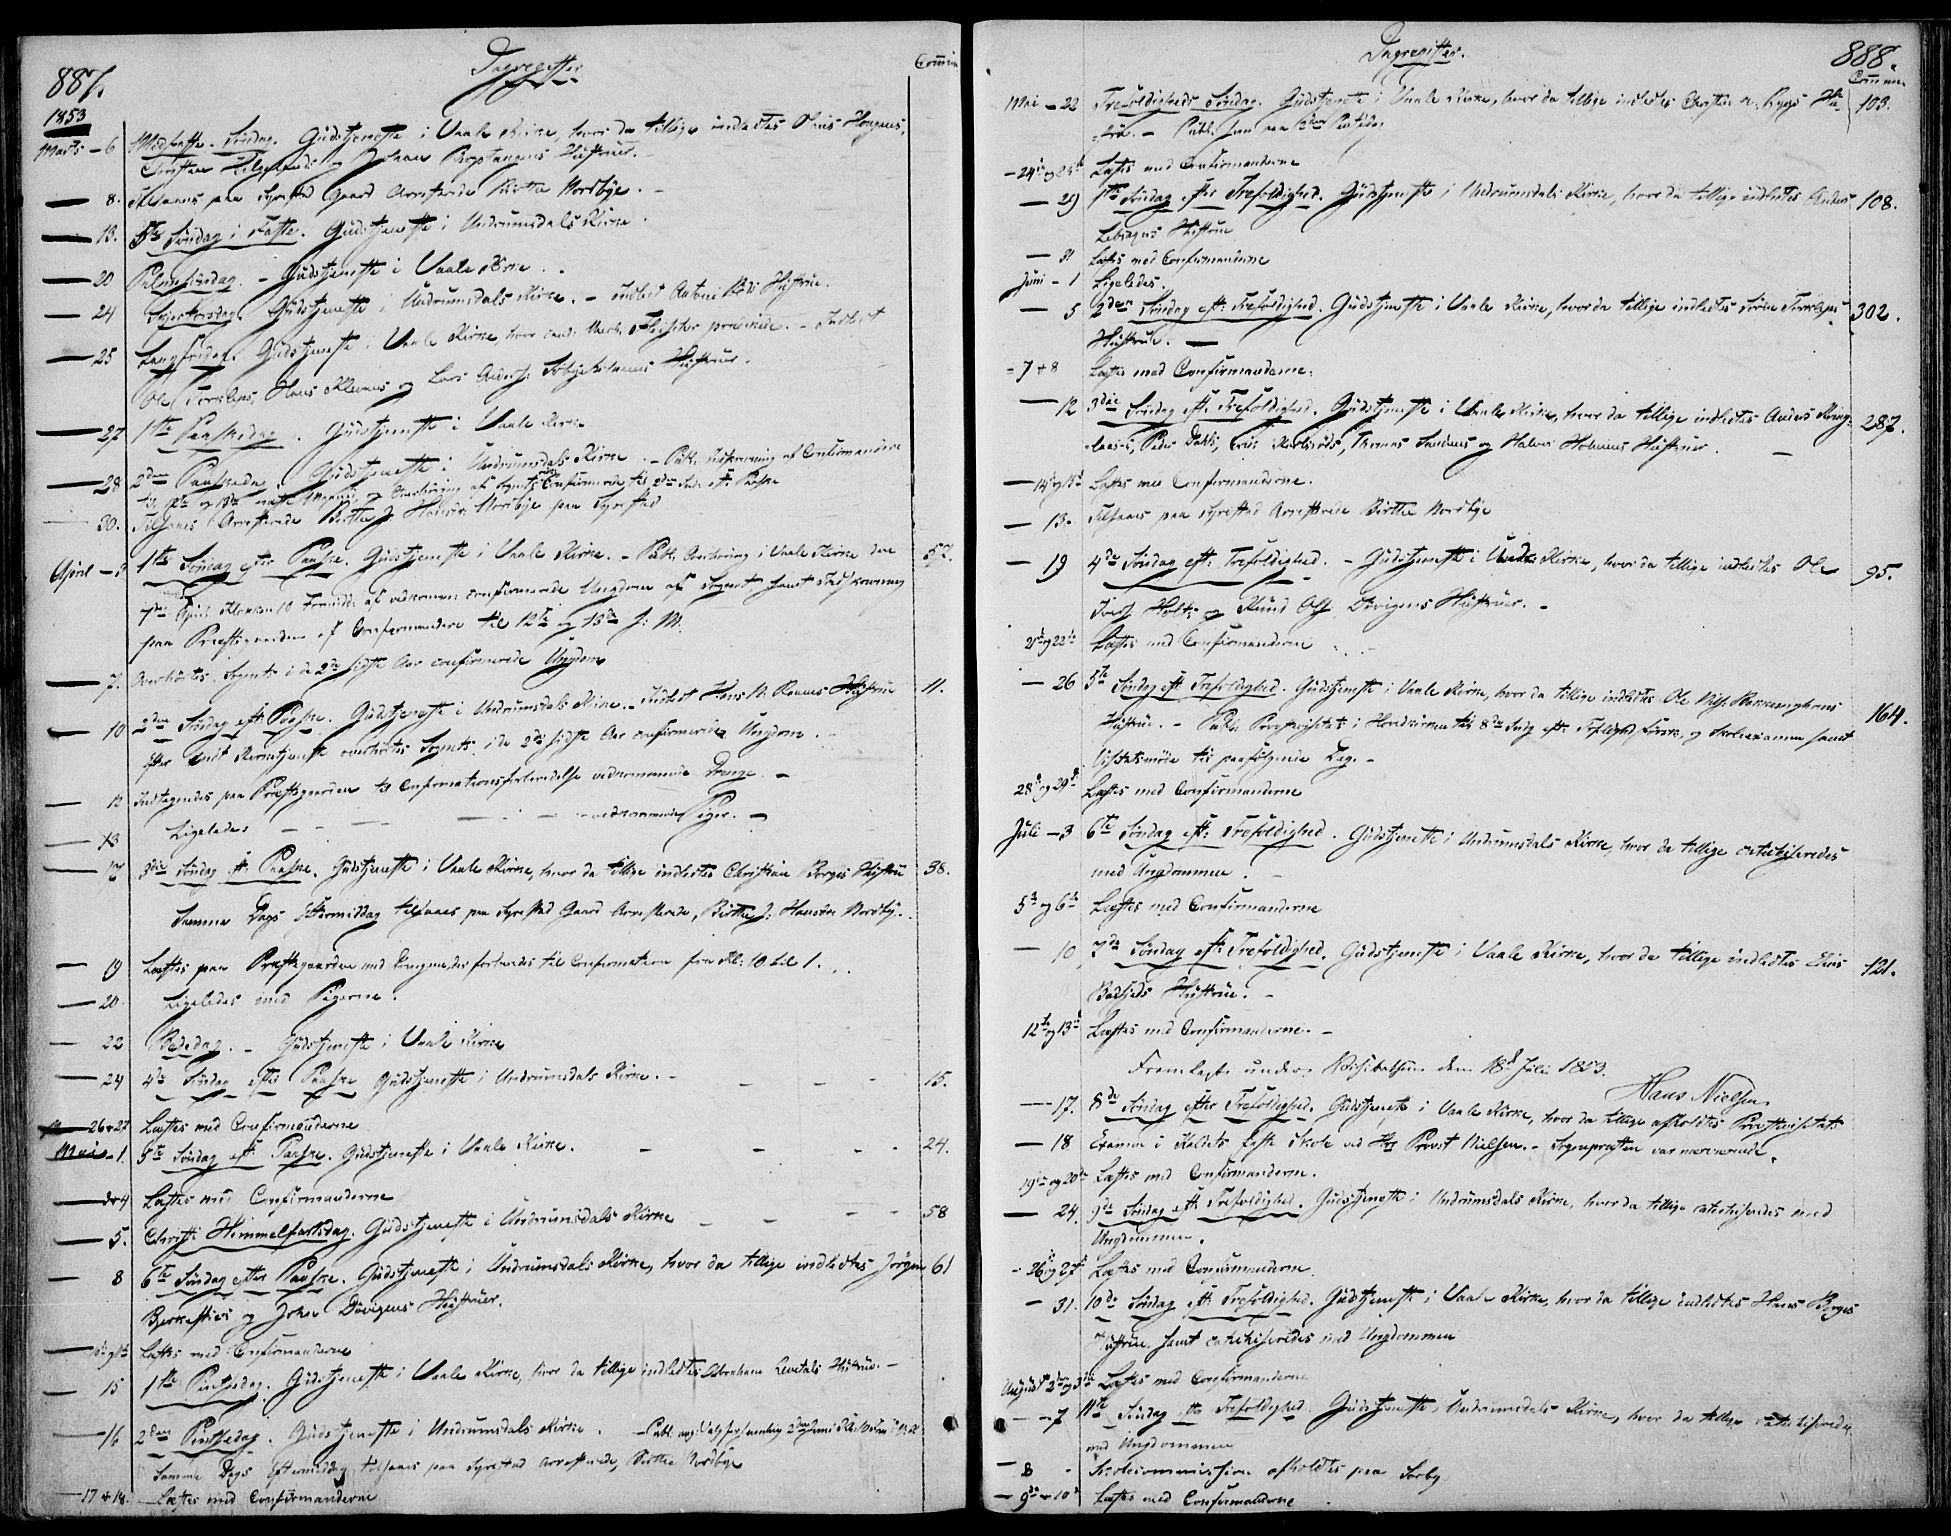 887.
Dagregister
Commun.
1853
Marts - 6 Midfaste-Søndag. Gudstjeneste i Vaale Kirke, hvor da tillige indledtes Haugans,
Christian og Johan Hustruer. -
— 8. Tilsaaes paa Syrestad Gaard Arresterede Birthe Nordbye. -
— 13. 5te Søndag i Faste. Gudstjeneste i Undrumsdals Kirke.
— 20 Palmesøndag. - Gudstjeneste i Vaale Kirke.
— 24 Skjertorsdag. Gudstjeneste i Undrumsdals Kirke. - Indledt Antoni Hustrue.
— 25 Langfredag. Gudstjeneste i Vaale Kirke, hvor cand. prædikede. - Indledt
Ole Torsleps, Hans Klevens og Lars Anders: Hustruer.
— 27 1ste Paaskedag. Gudstjeneste i Vaale Kirke
— 28 2den Paaskedag. Gudstjeneste i Undrumsdals Kirke. - Publ. Indskrivning af Confirmandere
til 12te og 13de næste Maaned, og Overhøring af Sognets Confirmerede til 2den Sønd. eft. Paaske
— 30. Tilsaaes Arresterede Birthe J. Hansdr. Nordbye paa Syrestad
April - 3 1ste Søndag efter Paaske. Gudstjeneste i Vaale Kirke. - Publ. Overhøring i Vaale Kirke den 57.
7de April Klokken 10 Formidd. af vedkomm: confirmerede Ungdom af Sognet, samt Indskrivning
paa Præstegaarden af Confirmandere til 12te og 13de d: M.
— 7. Overhørtes Sognets i de 2de sidste Aar confirmerede Ungdom
— 10 2den Søndag eft: Paaske. Gudstjeneste i Undrumsdals Kirke. - Indledt Hans N. Hustrue 11.
efter endt Kirketjeneste overhørtes Sognets i de 2de sidste Aar confirmerede Ungdom. -
— 12 Indtegnedes paa Præstegaarden til Confirmationsforberedelse vedkommende Drenge. -
— 13 Ligeledes — — — vedkommende Piger. -
— 17 3die Søndag eft. Paaske. Gudstjeneste i Vaale Kirke, hvor da tillige indledtes Christian Borges Hustrue 38.
Samme Dags Eftermiddag tilsaaes paa Syrestad Gaard Arresterede, Birthe J: Hansdtr Nordby.
— 19 Læstes paa Præstegaarden med Drengene, der forberedes til Confirmation fra Kl: 10 til 1.
— 20. Ligeledes med Pigerne.
— 22 Bededag. - Gudstjeneste i Vaale Kirke
— 24 4de Søndag efter Paaske Gudstjeneste i Undrumsdals Kirke. - — — — 15.
— 26 & 27 Læstes med Confirmanderne
Mai - 1. 5te Søndag eft. Paaske. Gudstjeneste i Vaale Kirke. — — — 24.
— 3 & 4 Læstes med Confirmanderne
— 5. Christi Himmelfartsdag. Gudstjeneste i Undrumsdals Kirke — — — 58
— 8 6te Søndag efter Paaske. Gudstjeneste i Undrumsdals Kirke, hvor da tillige indledtes Jørgen 61
og Johan Hustruer.
Læstes med Confirmanderne
— 15 1ste Pintsedag. Gudstjeneste i Vaale Kirke, hvor da tillige indledtes Abraham Hustrue. -
— 16 2den Pintsedag. Gudstjeneste i Undrumsdals Kirke. - Publ. ang: Valgforsamling 2den Juni
Samme Dags Eftermiddag tilsaaes paa Syrestad Arresterede, Birthe Nordbye
— 17 & 18. — Læstes med Confirmanderne
Dagregister.
888.
Commun.
Mai - 22 Trefoldigheds Søndag. Gudstjeneste i Vaale Kirke, hvor da tillige indledtes Christen Hu- 103.
strue. - Publ.
— 24de og 25de Læstes med Confirmanderne
— 29 1ste Søndag efter Trefoldighed. Gudstjeneste i Undrumsdals Kirke, hvor da tillige indledtes Anders 108.
Hustrue
— 31 Læstes med Confirmanderne
Juni - 1 Ligeledes.
— 5 2den Søndag eft: Trefoldighed. Gudstjeneste i Vaale Kirke, hvor da tillige indledtes Søren Torsleps 302.
Hustrue. —
- 7 & 8 Læstes med Confirmanderne.
— 12 3die Søndag eft. Trefoldighed. Gudstjeneste i Vaale Kirke, hvor da tillige indledtes Anders 287.
Peder Thomas og Halvor Hustruer. —
— 14de og 15de Læstes med Confirmanderne.
— 13. Tilsaaes paa Syrestad Arresterede Birthe Nordbye
— 19 4de Søndag eft: Trefoldighed. - Gudstjeneste i Undr. Kirke, hvor da tillige indledtes Ole 95.
Holts og Knud Ols: Hustruer. -
21de og 22de Læstes med Confirmanderne
— 26 5te Søndag eft. Trefoldighed. Gudstjeneste i Vaale Kirke, hvor da tillige indledtes Ole Nils: 164.
Hustrue. - Publ. Provstevisitats i Hovedkirken til 8de Sndg eft: Trefoldighed førstk, og Skoleexamen samt
Visitatsmøde til paafølgende Dag. -
28de og 29de Læstes med Confirmanderne
Juli - 3 6te Søndag eft: Trefoldighed. Gudstjeneste i Undrumsdals Kirke, hvor da tillige catechiseredes
med Ungdommen.
5te og 6te Læstes med Confirmanderne
— 10 7de Søndag eft. Trefoldighed. Gudstjeneste i Vaale Kirke, hvor da tillige indledtes 121.
Hustrue. -
12te og 13de Læstes med Confirmanderne. -
Fremlagt under Visitatsen den 18de Juli 1853.
Hans Nielsen
— 17. 8de Søndag efter Trefoldighed. Gudstjeneste i Vaale Kirke, hvor da tillige afholdtes Provstevisitats
— 18 Examen i Kaldets faste Skole ved Hr Provst Nielsen. - Sognepræsten var nærværende.
19de og 20de Læstes med Confirmanderne.
— 24. 9de Søndag eft. Trefoldighed. Gudstjeneste i Undrumsdals Kirke, hvor da tillige catechiseredes med
Ungdommen.
- 26de og 27de Læstes med Confirmanderne
— 31. 10de Søndag eft. Trefoldighed. Gudstjeneste i Vaale Kirke, hvor da tillige indledtes Hans Borges
Hustrue, samt catechiseredes med Ungdommen
August 2den og 3die Læstes med Confirmanderne
— 7 11te Søndag eft. Trefoldighed. Gudstjeneste i Undrumsdals Kirke, hvor da tillige catechiseredes
med Ungdommen
— 8 - Skolecommission afholdtes paa Sørby
— 9de & 10de Læstes med Confirmanderne